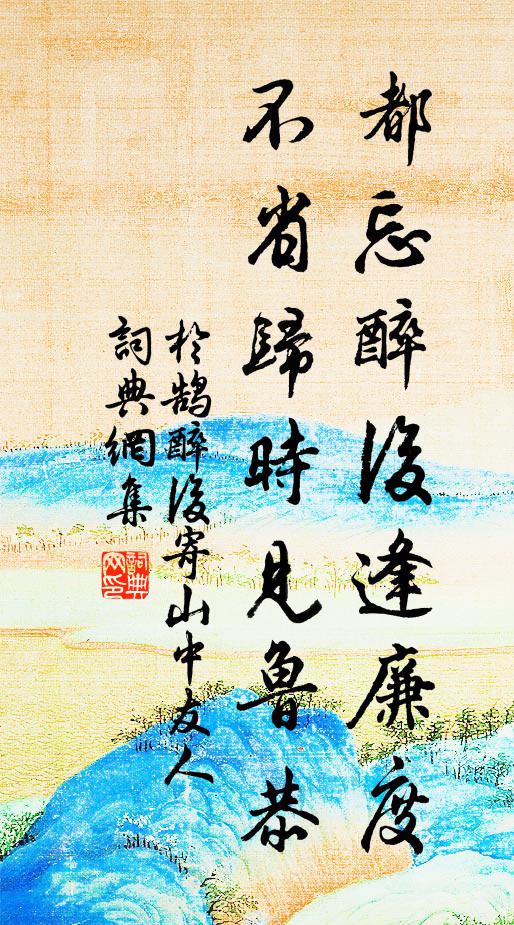 都忘醉後逢廉度
不省歸時見魯恭
於鵠醉後寄山中友人
詞典網集
詞典
网印